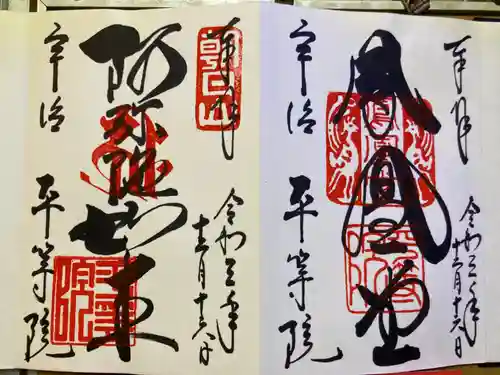 奉拝
令和三年
十二月十六日
鳳凰堂
宇治
平等院
奉拝
朝日山
令和三年
十二月十六日
阿弥陀如来
宇治
平等院